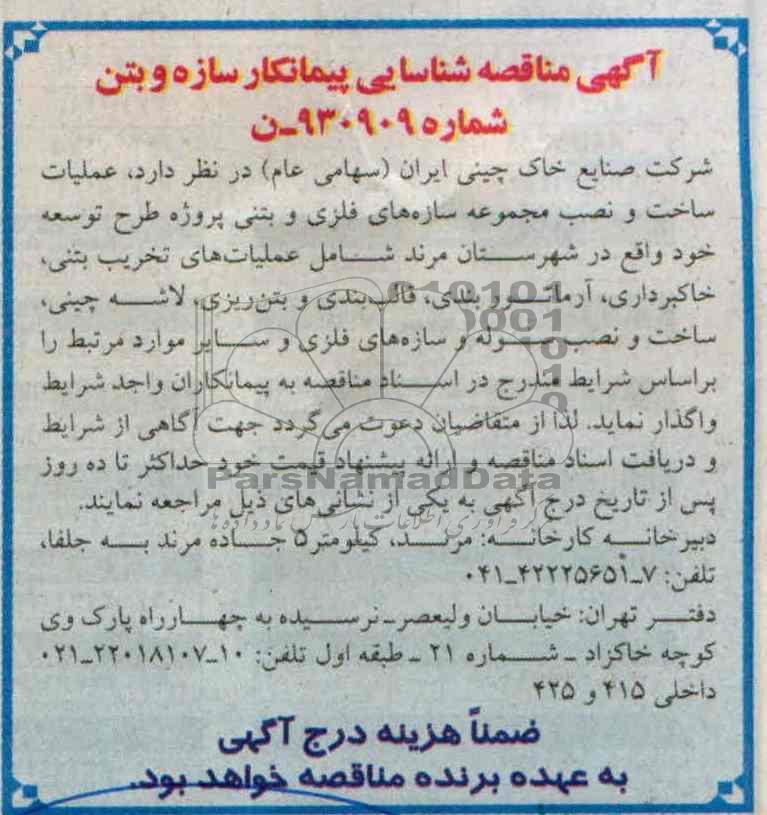 آگهی مناقصه شناسایی پیمانکار سازه و بتن
شماره ۹۳۰۹۰۹-ن
شرکت صنایع خاک چینی ایران (سهامی عام) در نظر دارد، عملیات
ساخت و نصب مجموعه سازه‌های فلزی و بتنی پروژه طرح توسعه
خود واقع در شهرستان مرند شامل عملیات‌های تخریب بتنی،
خاکبرداری، آرماتور بندی، قالب‌بندی و بتن‌ریزی، لاشه چینی،
ساخت و نصب سوله و سازه‌های فلزی و سایر موارد مرتبط را
براساس شرایط مندرج در اسناد مناقصه به پیمانکاران واجد شرایط
واگذار نماید. لذا از متقاضیان دعوت می‌گردد جهت آگاهی از شرایط
و دریافت اسناد مناقصه و ارائه پیشنهاد قیمت خود حداکثر تا ده روز
پس از تاریخ درج آگهی به یکی از نشانی‌های ذیل مراجعه نمایند.
دبیرخانه کارخانه: مرند، کیلومتر۵ جاده مرند به جلفا،
تلفن: ۷-۴۲۲۲۵۶۵۱-۰۴۱
دفتر تهران: خیابان ولیعصر-نرسیده به چهارراه پارک وی
کوچه خاکزاد - شماره ۲۱ - طبقه اول تلفن: ۱۰-۲۲۰۱۸۱۰۷-۰۲۱
داخلی ۴۱۵ و ۴۲۵
ضمناً هزینه درج آگهی
به عهده برنده مناقصه خواهد بود.
ParsNamadData